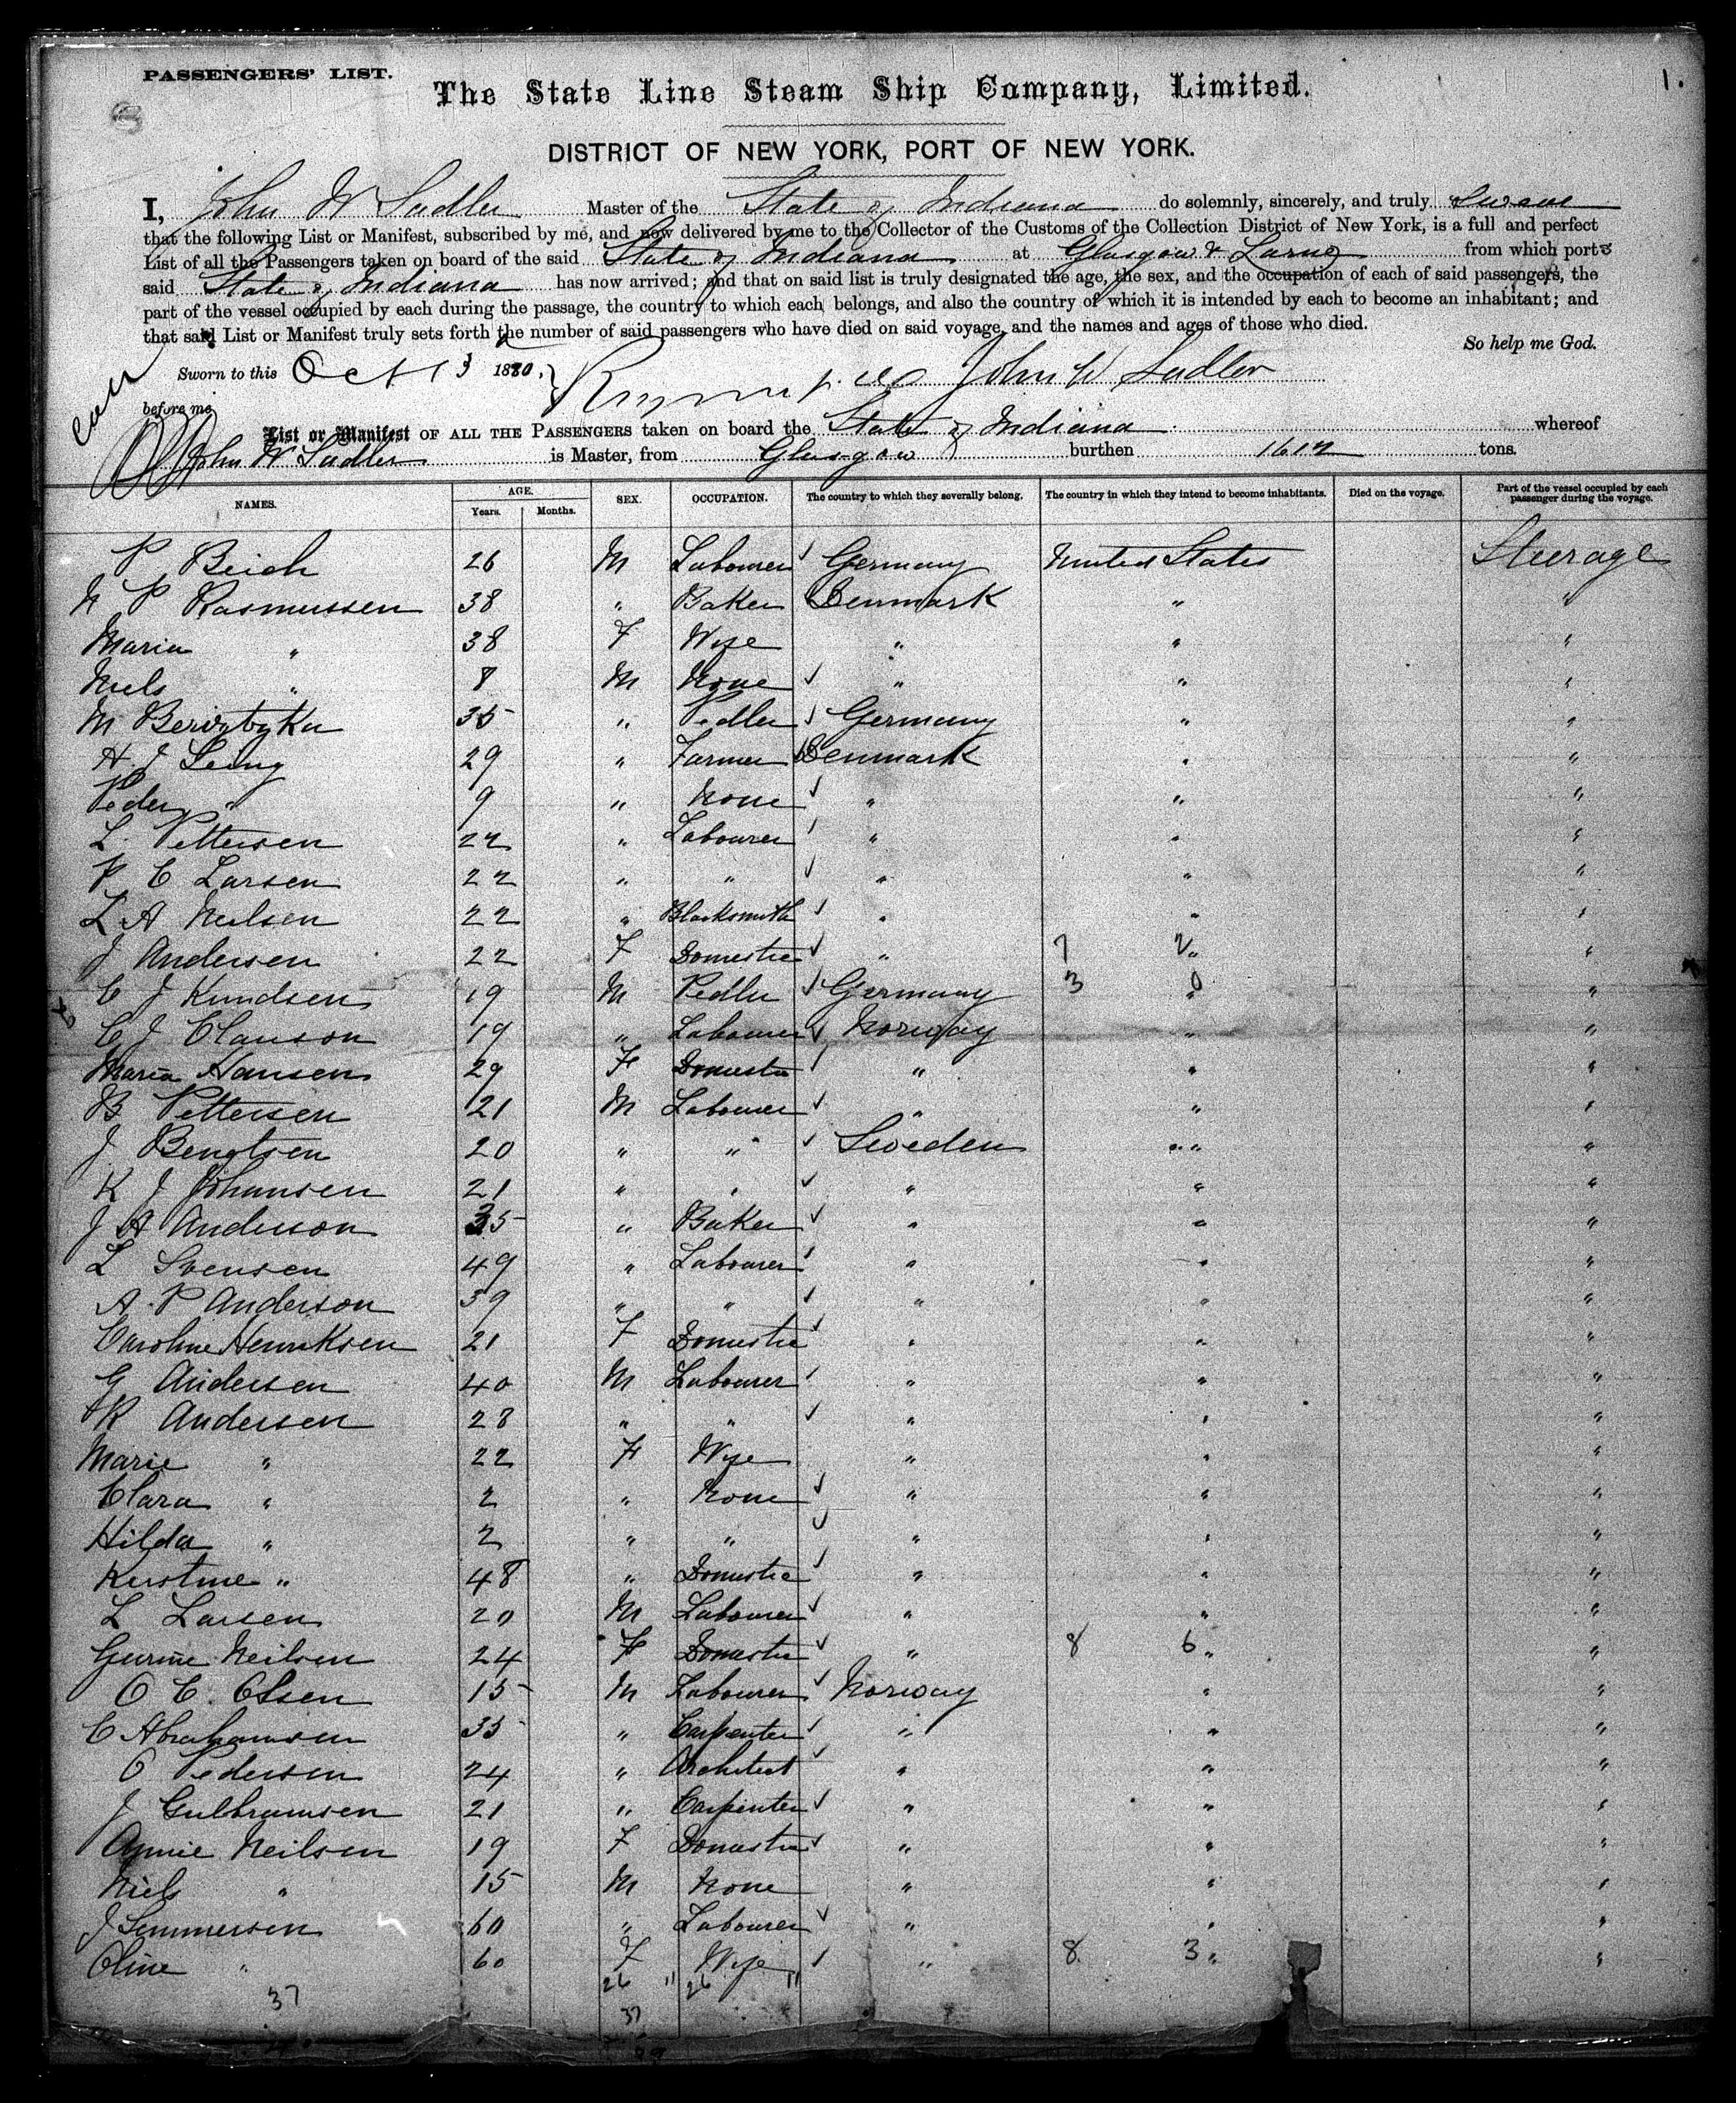 PASSENGERS' LIST.
1.
The State Line Steam Ship Company, Limited.
DISTRICT OF NEW YORK, PORT OF NEW YORK.
I, John W Sadler Master of the State of Indiana do solemnly, sincerely, and truly Swear
that the following List or Manifest, subscribed by me, and now delivered by me to the Collector of the Customs of the Collection District of New York, is a full and perfect
List of all the Passengers taken on board of the said State of Indiana at Glasgow & Larne from which ports
said State of Indiana has now arrived; and that on said list is truly designated the age, the sex, and the occupation of each of said passengers, the
part of the vessel occupied by each during the passage, the country to which each belongs, and also the country of which it is intended by each to become an inhabitant; and
that said List or Manifest truly sets forth the number of said passengers who have died on said voyage, and the names and ages of those who died.
So help me God.
Sworn to this Oct 13 1880. John W Sadler
before me
List or Manifest OF ALL THE PASSENGERS taken on board the State of Indiana whereof
John W Sadler is Master, from Glasgow burthen 1612 tons.
NAMES. AGE. Years. Months. SEX. OCCUPATION. The country to which they severally belong. The country in which they intend to become inhabitants. Died on the voyage. Part of the vessel occupied by each passenger during the voyage.
P Beich 26 M Labourer Germany United States Steerage
N P Rasmussen 38 " Baker Denmark " "
Maria " 38 F Wife " " "
Niels " 8 M None " " "
M 35 " Pedler Germany " "
H J 29 " Farmer Denmark " "
Peder " 9 " None " " "
L. Pettersen 22 " Labourer " " "
P C Larsen 22 " " " " "
L A Neilsen 22 " Blacksmith " " "
J Andersen 22 F Domestic " 7 2 " "
C J Knudsen 19 M Pedler Germany 3 0 " "
C J Clauson 19 " Labourer Norway " "
Maria Hansen 29 F Domestic " " "
B Pettersen 21 M Labourer " " "
J Bengtsen 20 " " Sweden " "
K J Johansen 21 " " " " "
J A Anderson 35 " Baker " " "
L Svensen 49 " Labourer " " "
A. P Anderson 39 " " " " "
Caroline Henriksen 21 F Domestic " " "
G Andersen 40 M Labourer " " "
R Andersen 28 " " " " "
Marie " 22 F Wife " " "
Clara " 2 " None " " "
Hilda " 2 " " " " "
Kirstine " 48 " Domestic " " "
L Larsen 20 M Labourer " " "
Gurine Neilsen 24 F Domestic " 8 6 " "
O C. Olsen 15 M Labourer Norway " "
C Abrahamsen 35 " Carpenter " " "
O Pedersen 24 " Architect " " "
J Gulbramsen 21 " Carpenter " " "
Annie Neilsen 19 F Domestic " " "
Niels " 15 M None " " "
J Simmersen 60 " Labourer " " "
Oline " 60 F Wife " 8 3 " "
26 " 26 11
37 37